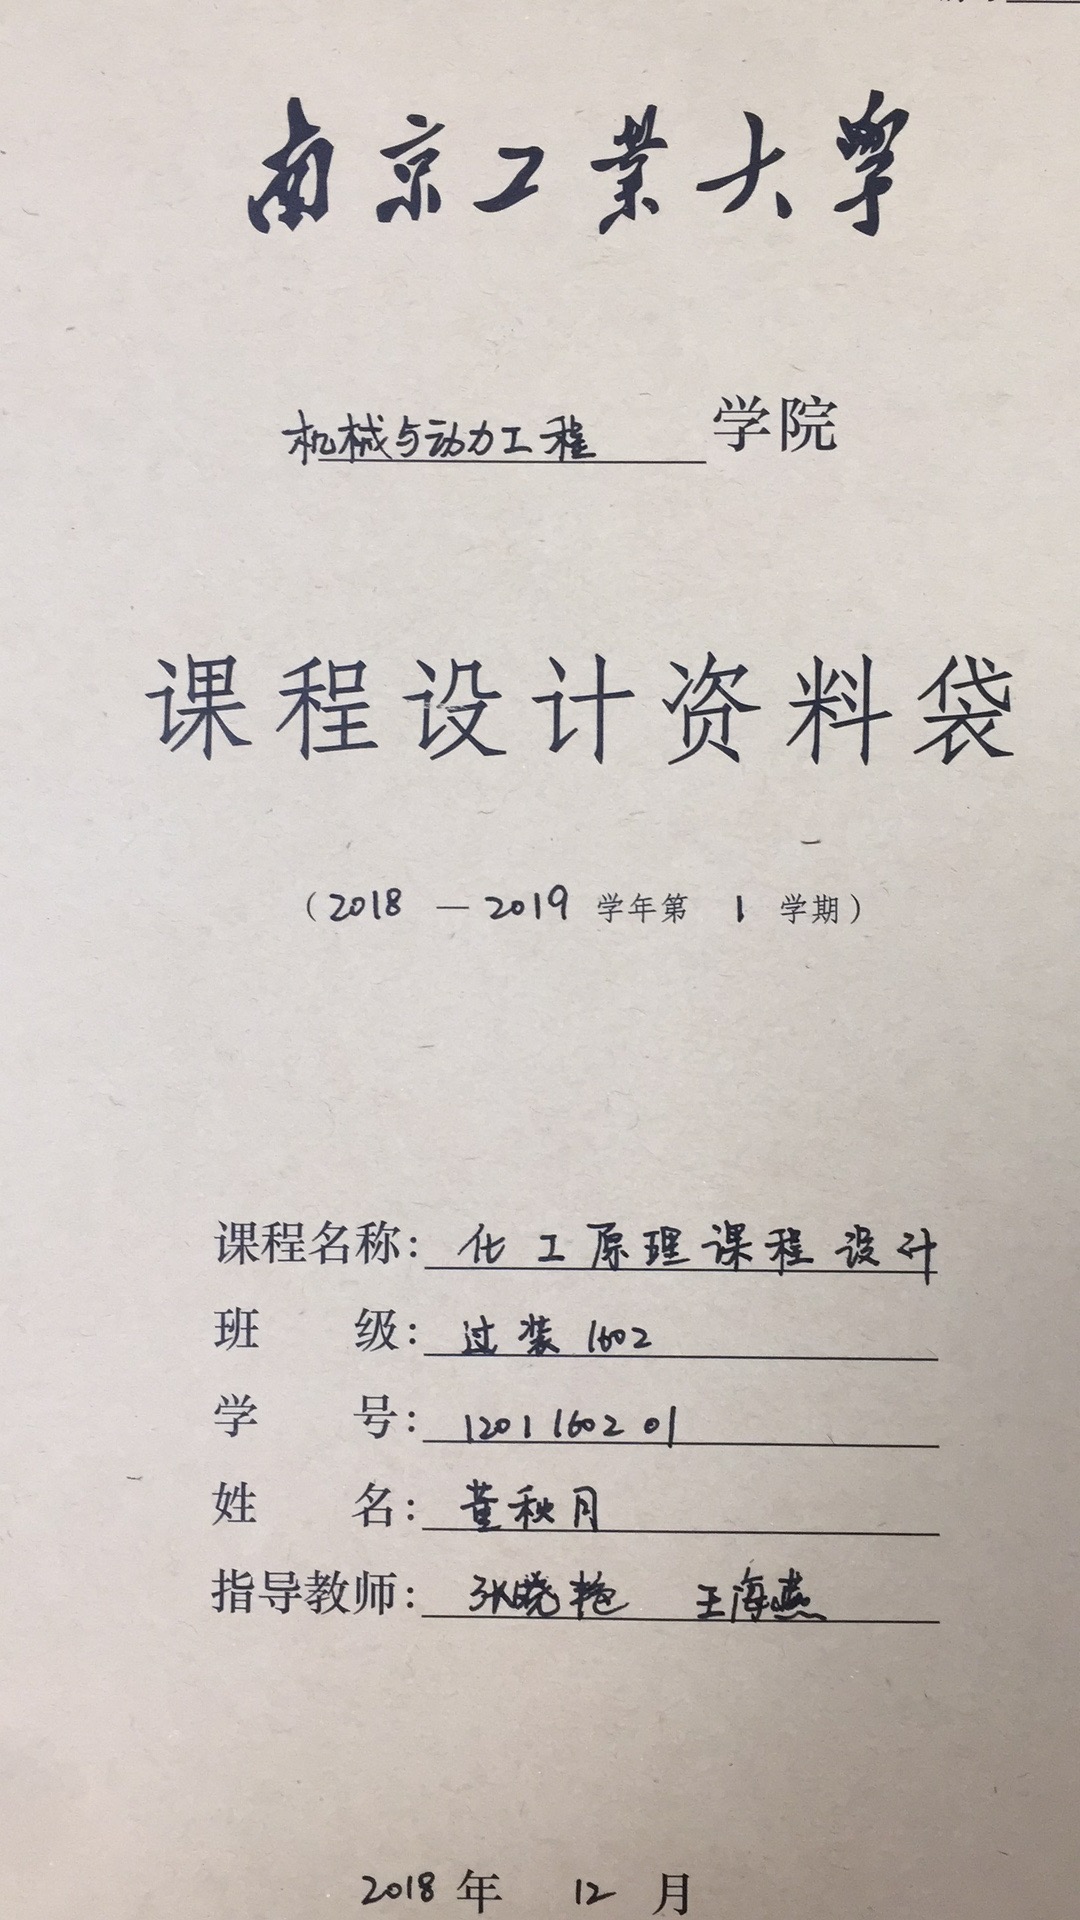 南京工业大学
机械与动力工程学院
课程设计资料袋
（2018 — 2019 学年第 1 学期）
课程名称：化工原理课程设计
班 级：过装1602
学 号：1201160201
姓 名：董秋月
指导教师：张晓艳 王海燕
2018 年 12 月